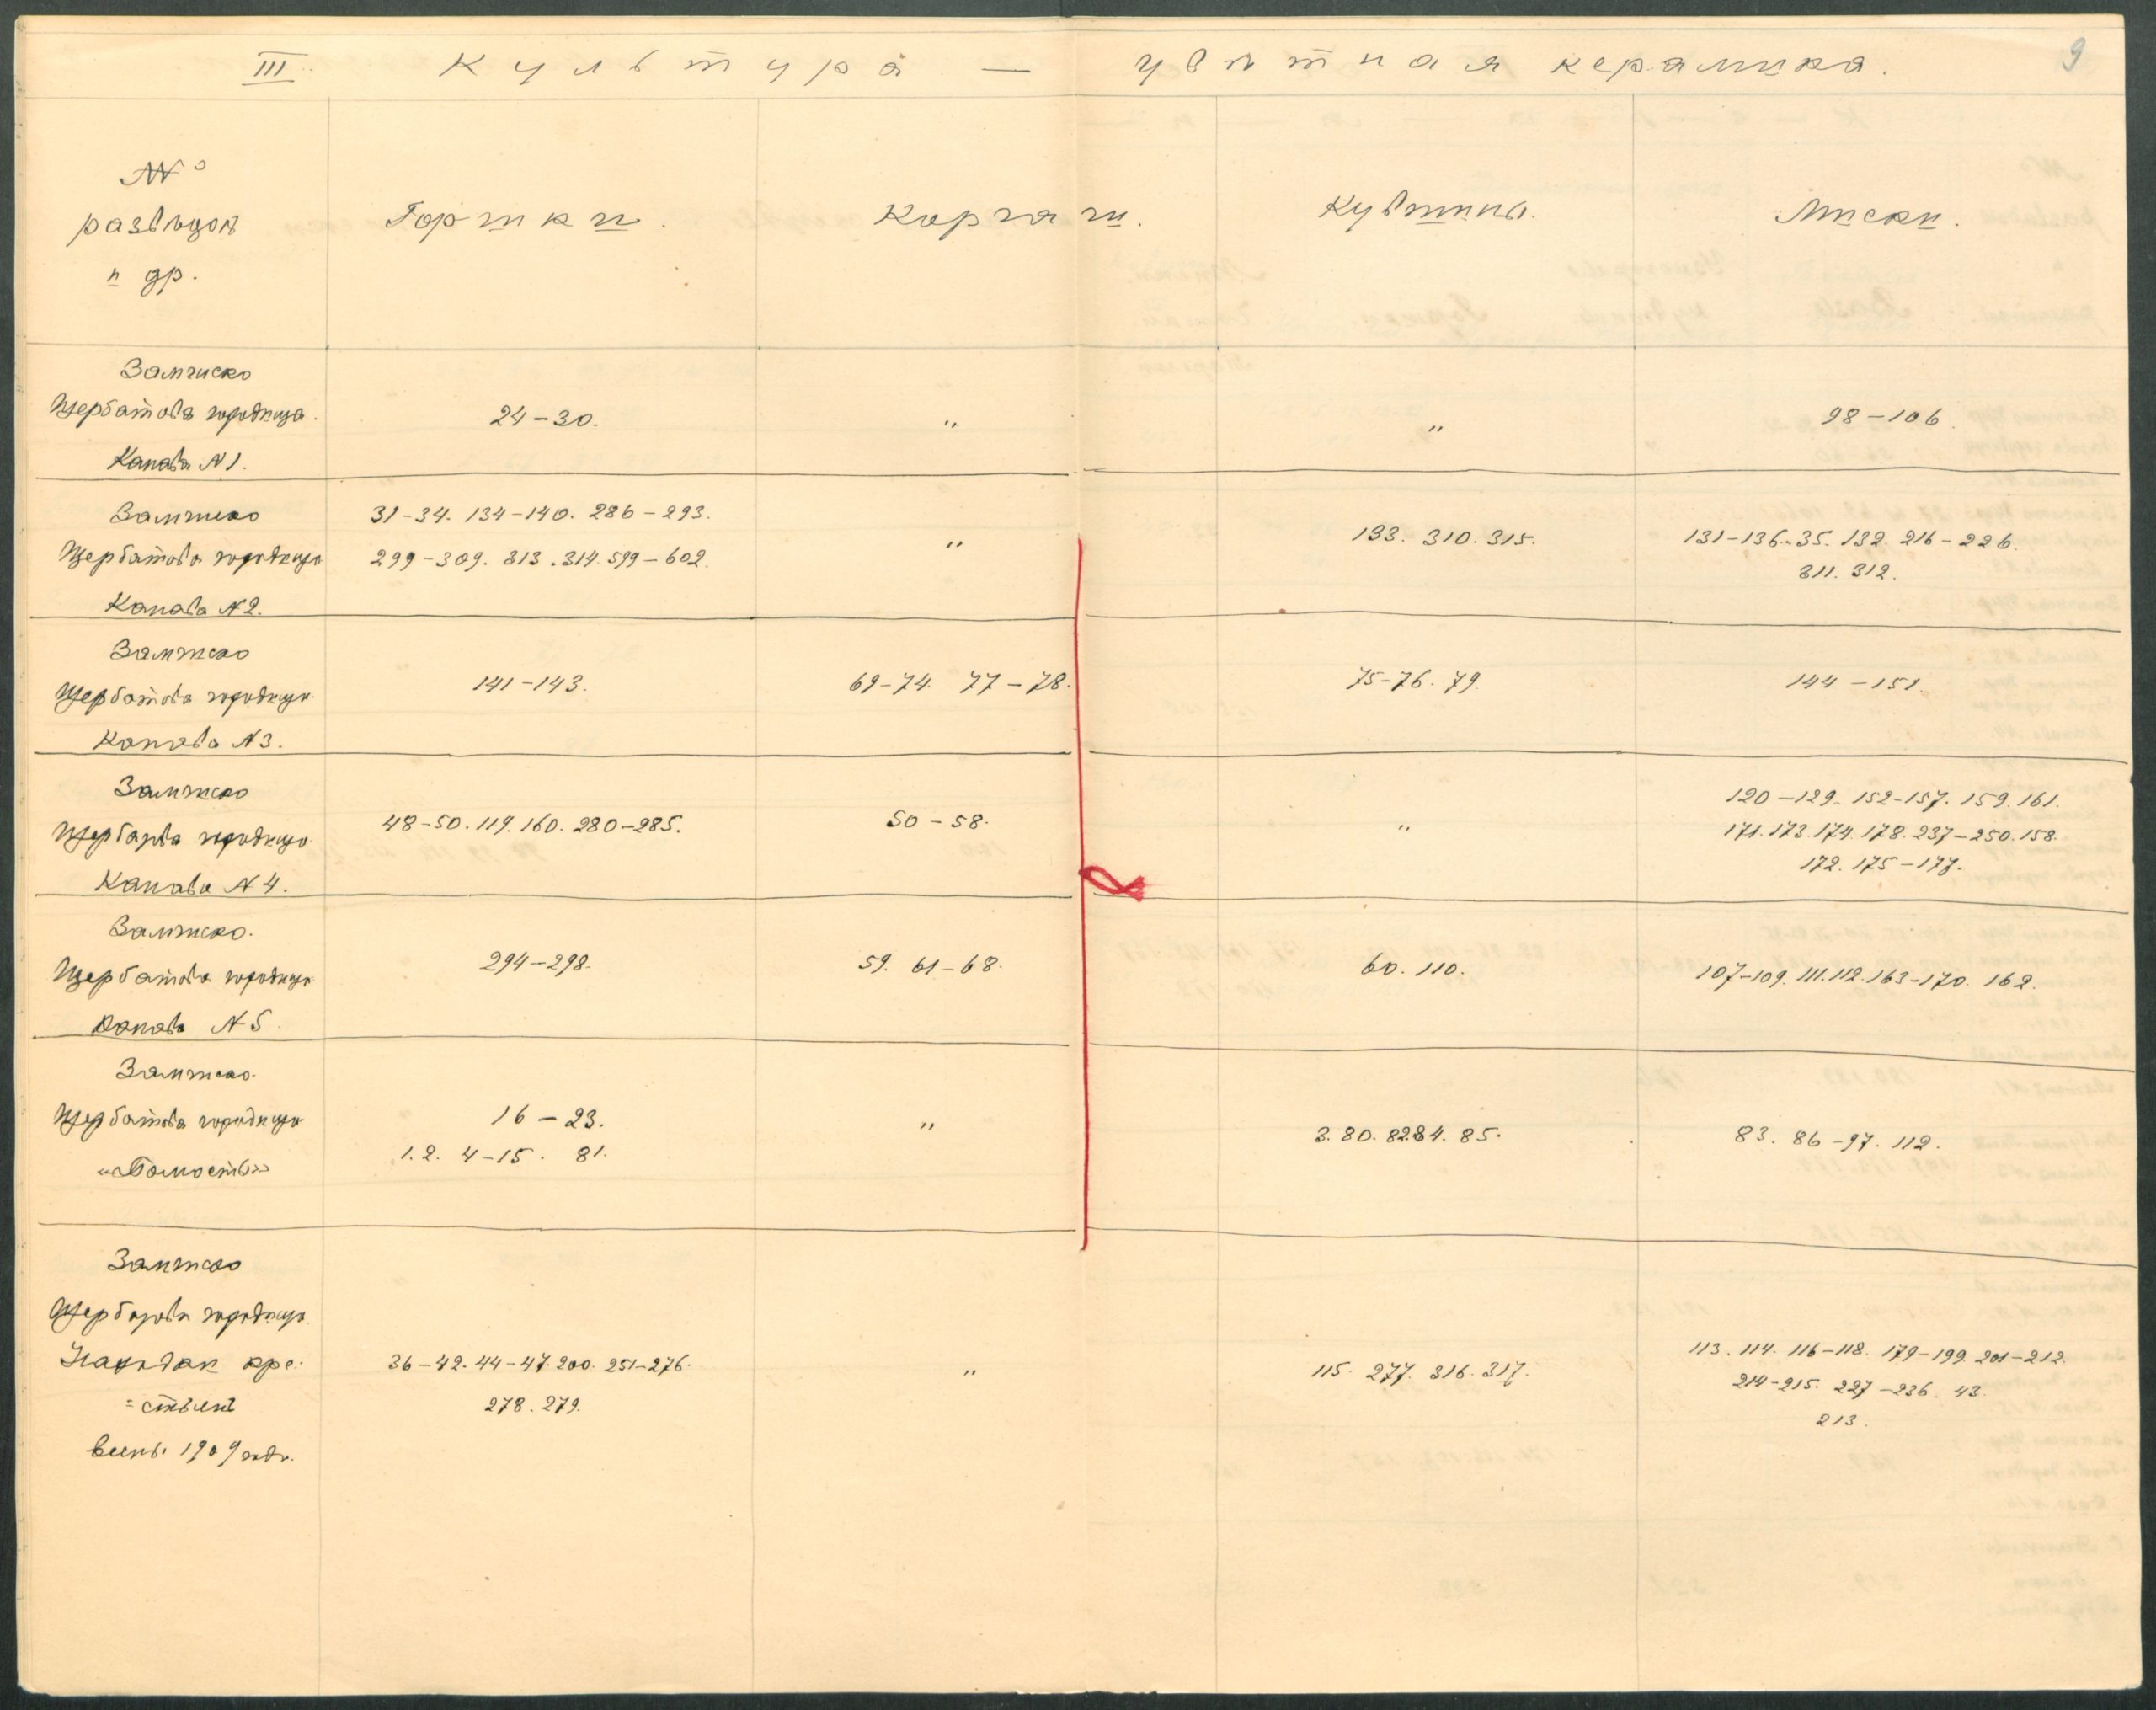 III. Культура — цвѣтная керамика. 9
№№
развѣдокъ
и др.
Горшки. Корчаги. Кувшины. Миски.
Замчиско
Щербатова городища.
Канава N 1.
24–30. " " 98–106.
Замчиско
Щербатова городища
Канава N 2.
31–34. 134–140. 286–293.
299–309. 313. 314. 599–602.
" 133. 310. 315. 131–136. 35. 132. 216–226.
311. 312.
Замчиско
Щербатова городища
Канава N 3.
141–143. 69–74. 77–78. 75–76. 79. 144–151.
Замчиско
Щербатова городища
Канава N 4.
48–50. 119. 160. 280–285. 50–58. " 120–129. 152–157. 159. 161.
171. 173. 174. 178. 237–250. 158.
172. 175–177.
Замчиско.
Щербатова городища
Канава N 5.
294–298. 59. 61–68. 60. 110. 107–109. 111. 112. 163–170. 162.
Замчиско
Щербатова городища
"Помость"
16–23.
1. 2. 4–15. 81.
" 3. 80. 82. 84. 85. 83. 86–97. 112.
Замчиско
Щербатова городища
Находки кре-
=стьянъ
весны 1909 года.
36–42. 44–47. 200. 251–276.
278. 279.
" 115. 277. 316. 317. 113. 114. 116–118. 179–199. 201–212.
214–215. 227–236. 43.
213.